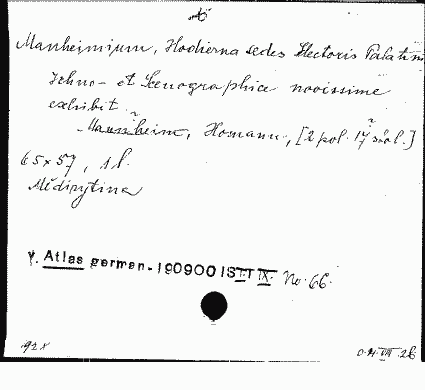 Manheimium, Hodierna sedes Electoris Palatini
Ichno- et Scenographice novissime
exhibit.
Mannheim, Homann, [2 pol. 17? stol.]
65x57, 1 l.
Mědirytina
v. Atlas german. - 190900 IST. T. IX. No. 66.